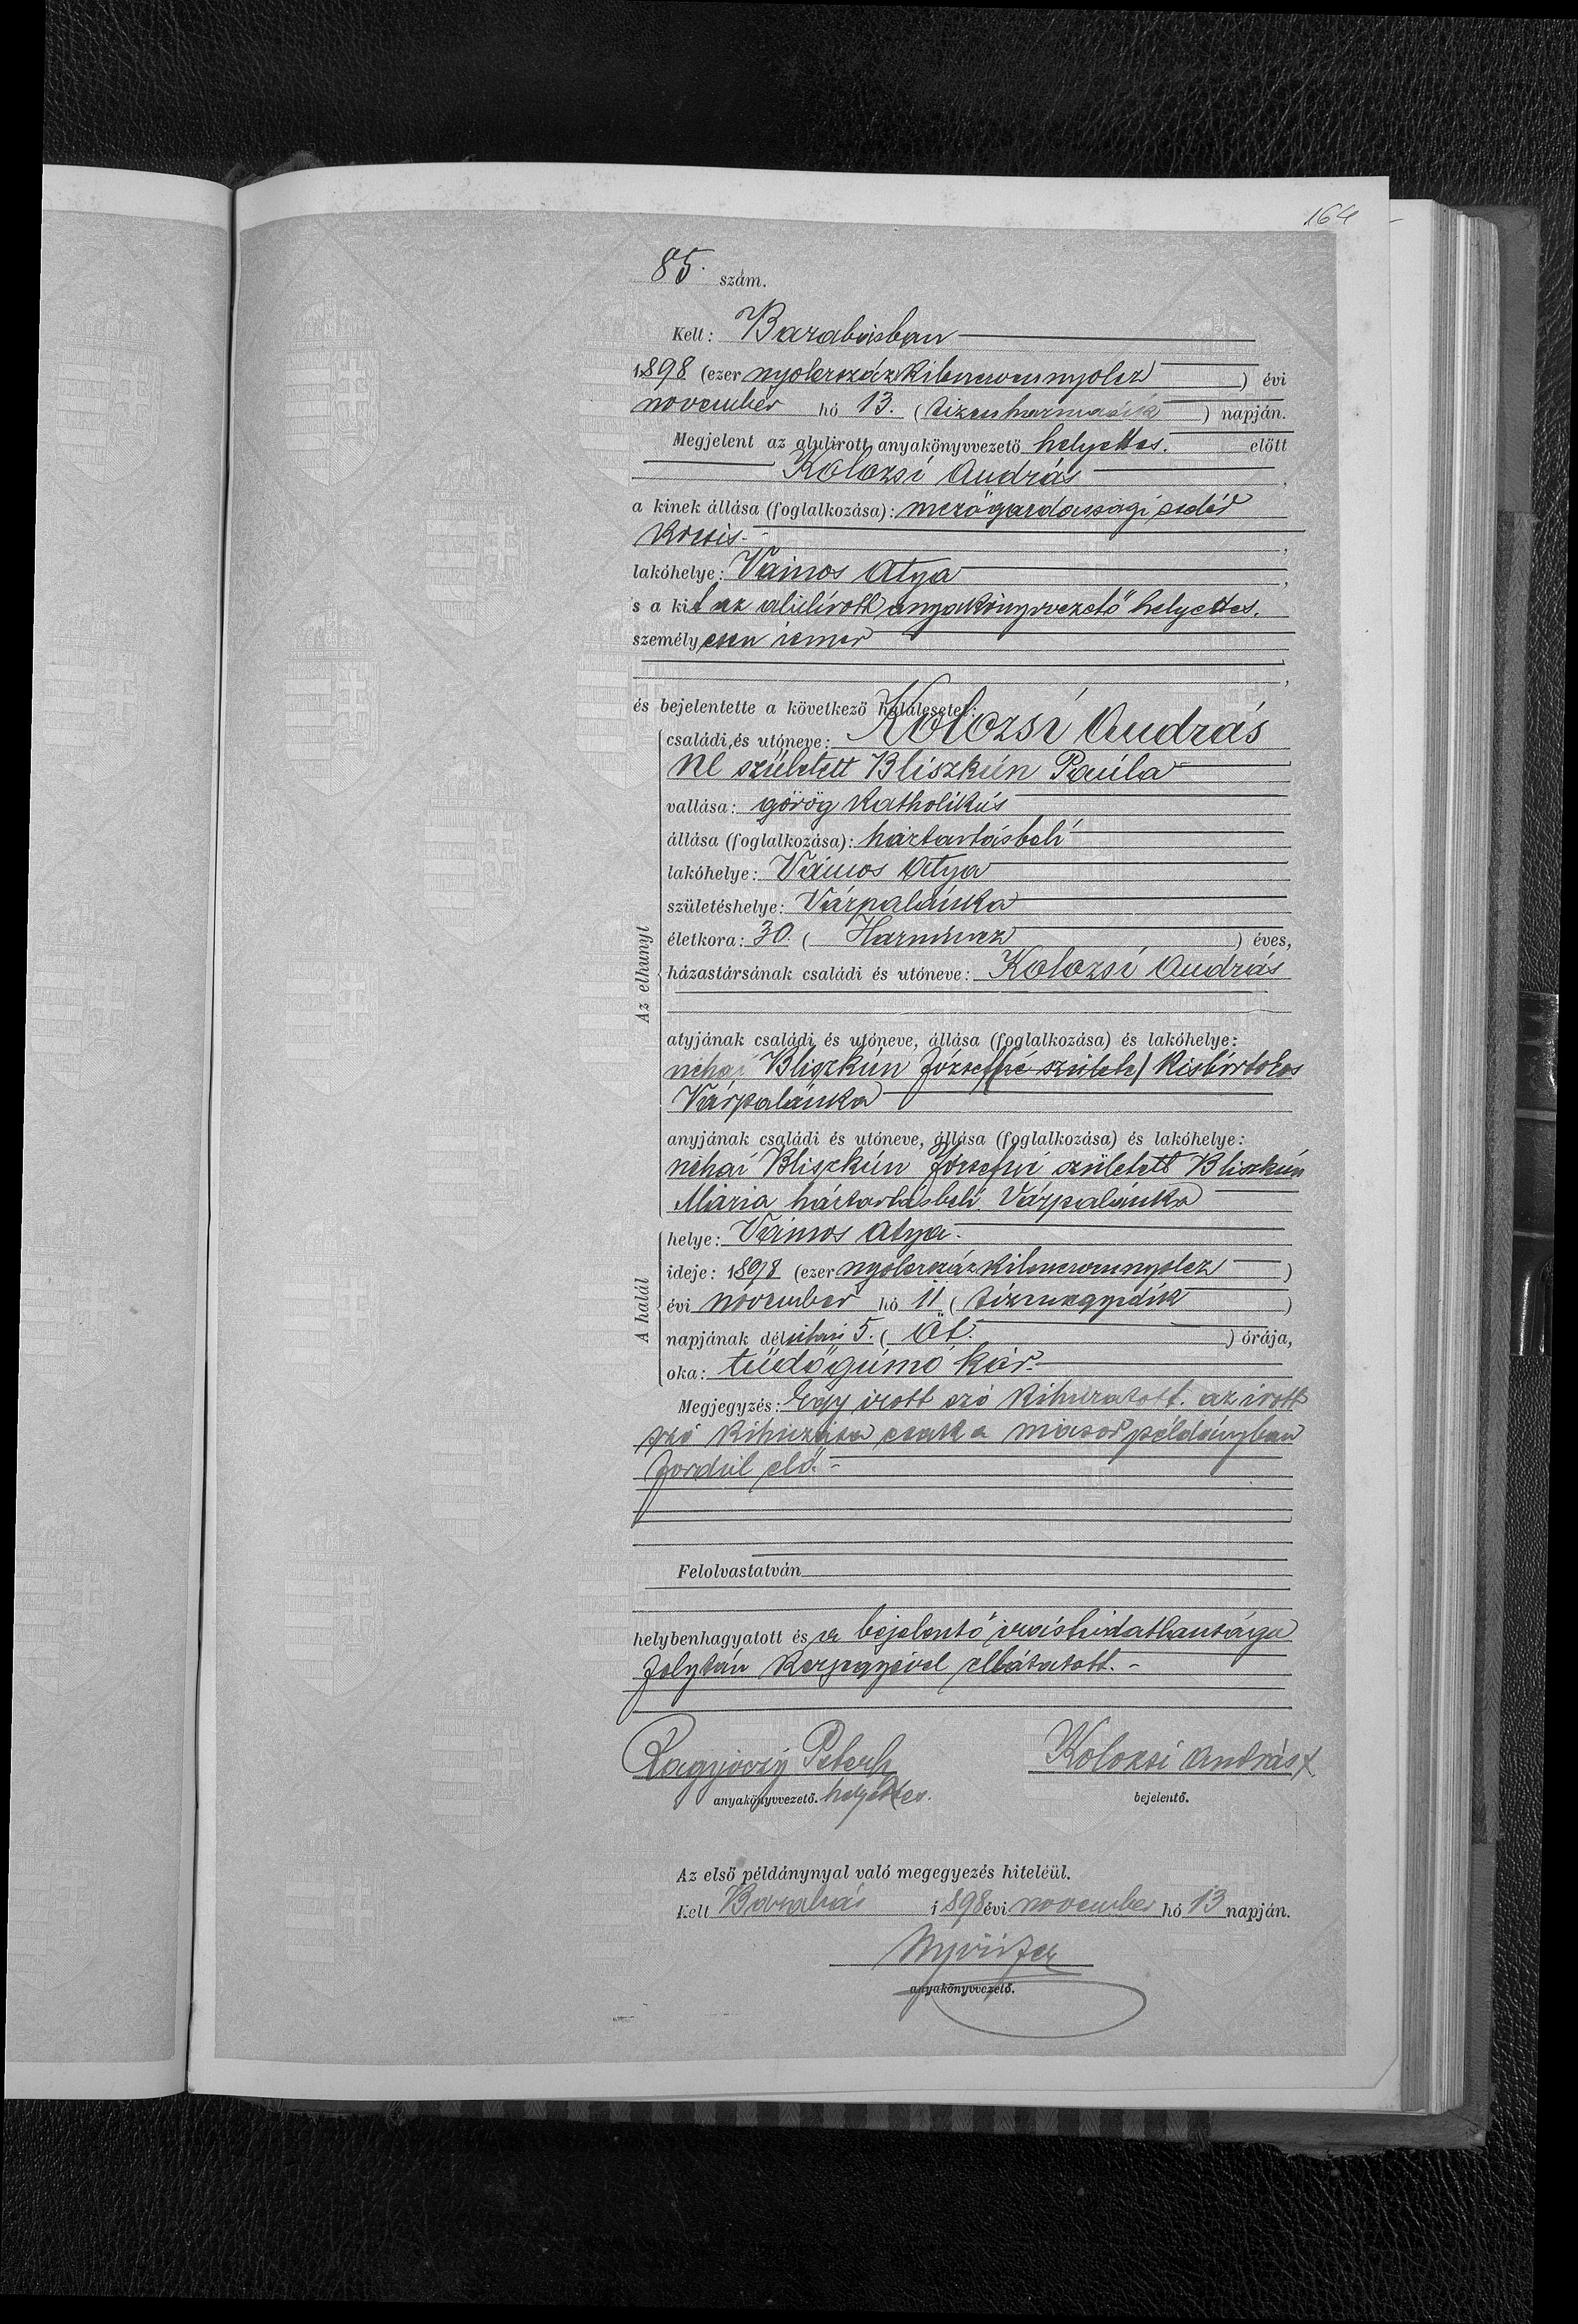 164
85. szám.
Kelt: Barabásban
1898 (ezer nyolczszázkilenczvennyolcz) évi
november hó 13. (tizenharmadik) napján.
Megjelent az alulirott anyakönyvvezető helyettes. előtt
Kolozsi András
a kinek állása (foglalkozása): mezőgazdasági cseléd
kocsis.
lakóhelye: Vámos Atya
s a kit az alulírott anyakönyvvezető helyettes.
személyesen ismer
és bejelentette a következő halálesetet:
Az elhunyt
családi és utóneve: Kolozsi András
né született Bliszkún Paúla
vallása: görög katholikús
állása (foglalkozása): háztartásbeli
lakóhelye: Vámos Atya
születéshelye: Várpalánka
életkora: 30. (Harmincz) éves,
házastársának családi és utóneve: Kolozsi András
atyjának családi és utóneve, állása (foglalkozása) és lakóhelye:
néhai Bliszkún József (né születe) kisbirtokos
Várpalánka
anyjának családi és utóneve, állása (foglalkozása) és lakóhelye:
néhai Bliszkún Józsefné született Bliszkún
Mária háztartásbeli Várpalánka
A halál
helye: Vámos Atya.
ideje: 1898 (ezer nyolczszázkilenczvennyolcz)
évi november hó 11 (tizenegyedik)
napjának délutáni 5. (öt.) órája,
oka: tüdőgümő kór.
Megjegyzés: Egy irott szó kihúzatott. az irott
szó kihúzása csak a másod példányban
fordúl elő.
Felolvastatván
helybenhagyatott és a bejelentő irástudatlansága
folytán kézjegyével ellátatott.
Péter Kolozsi András x
anyakönyvvezető. helyettes. bejelentő.
Az első példánynyal való megegyezés hiteléül.
Kelt Barabás 1898 évi november hó 13 napján.
anyakönyvvezető.